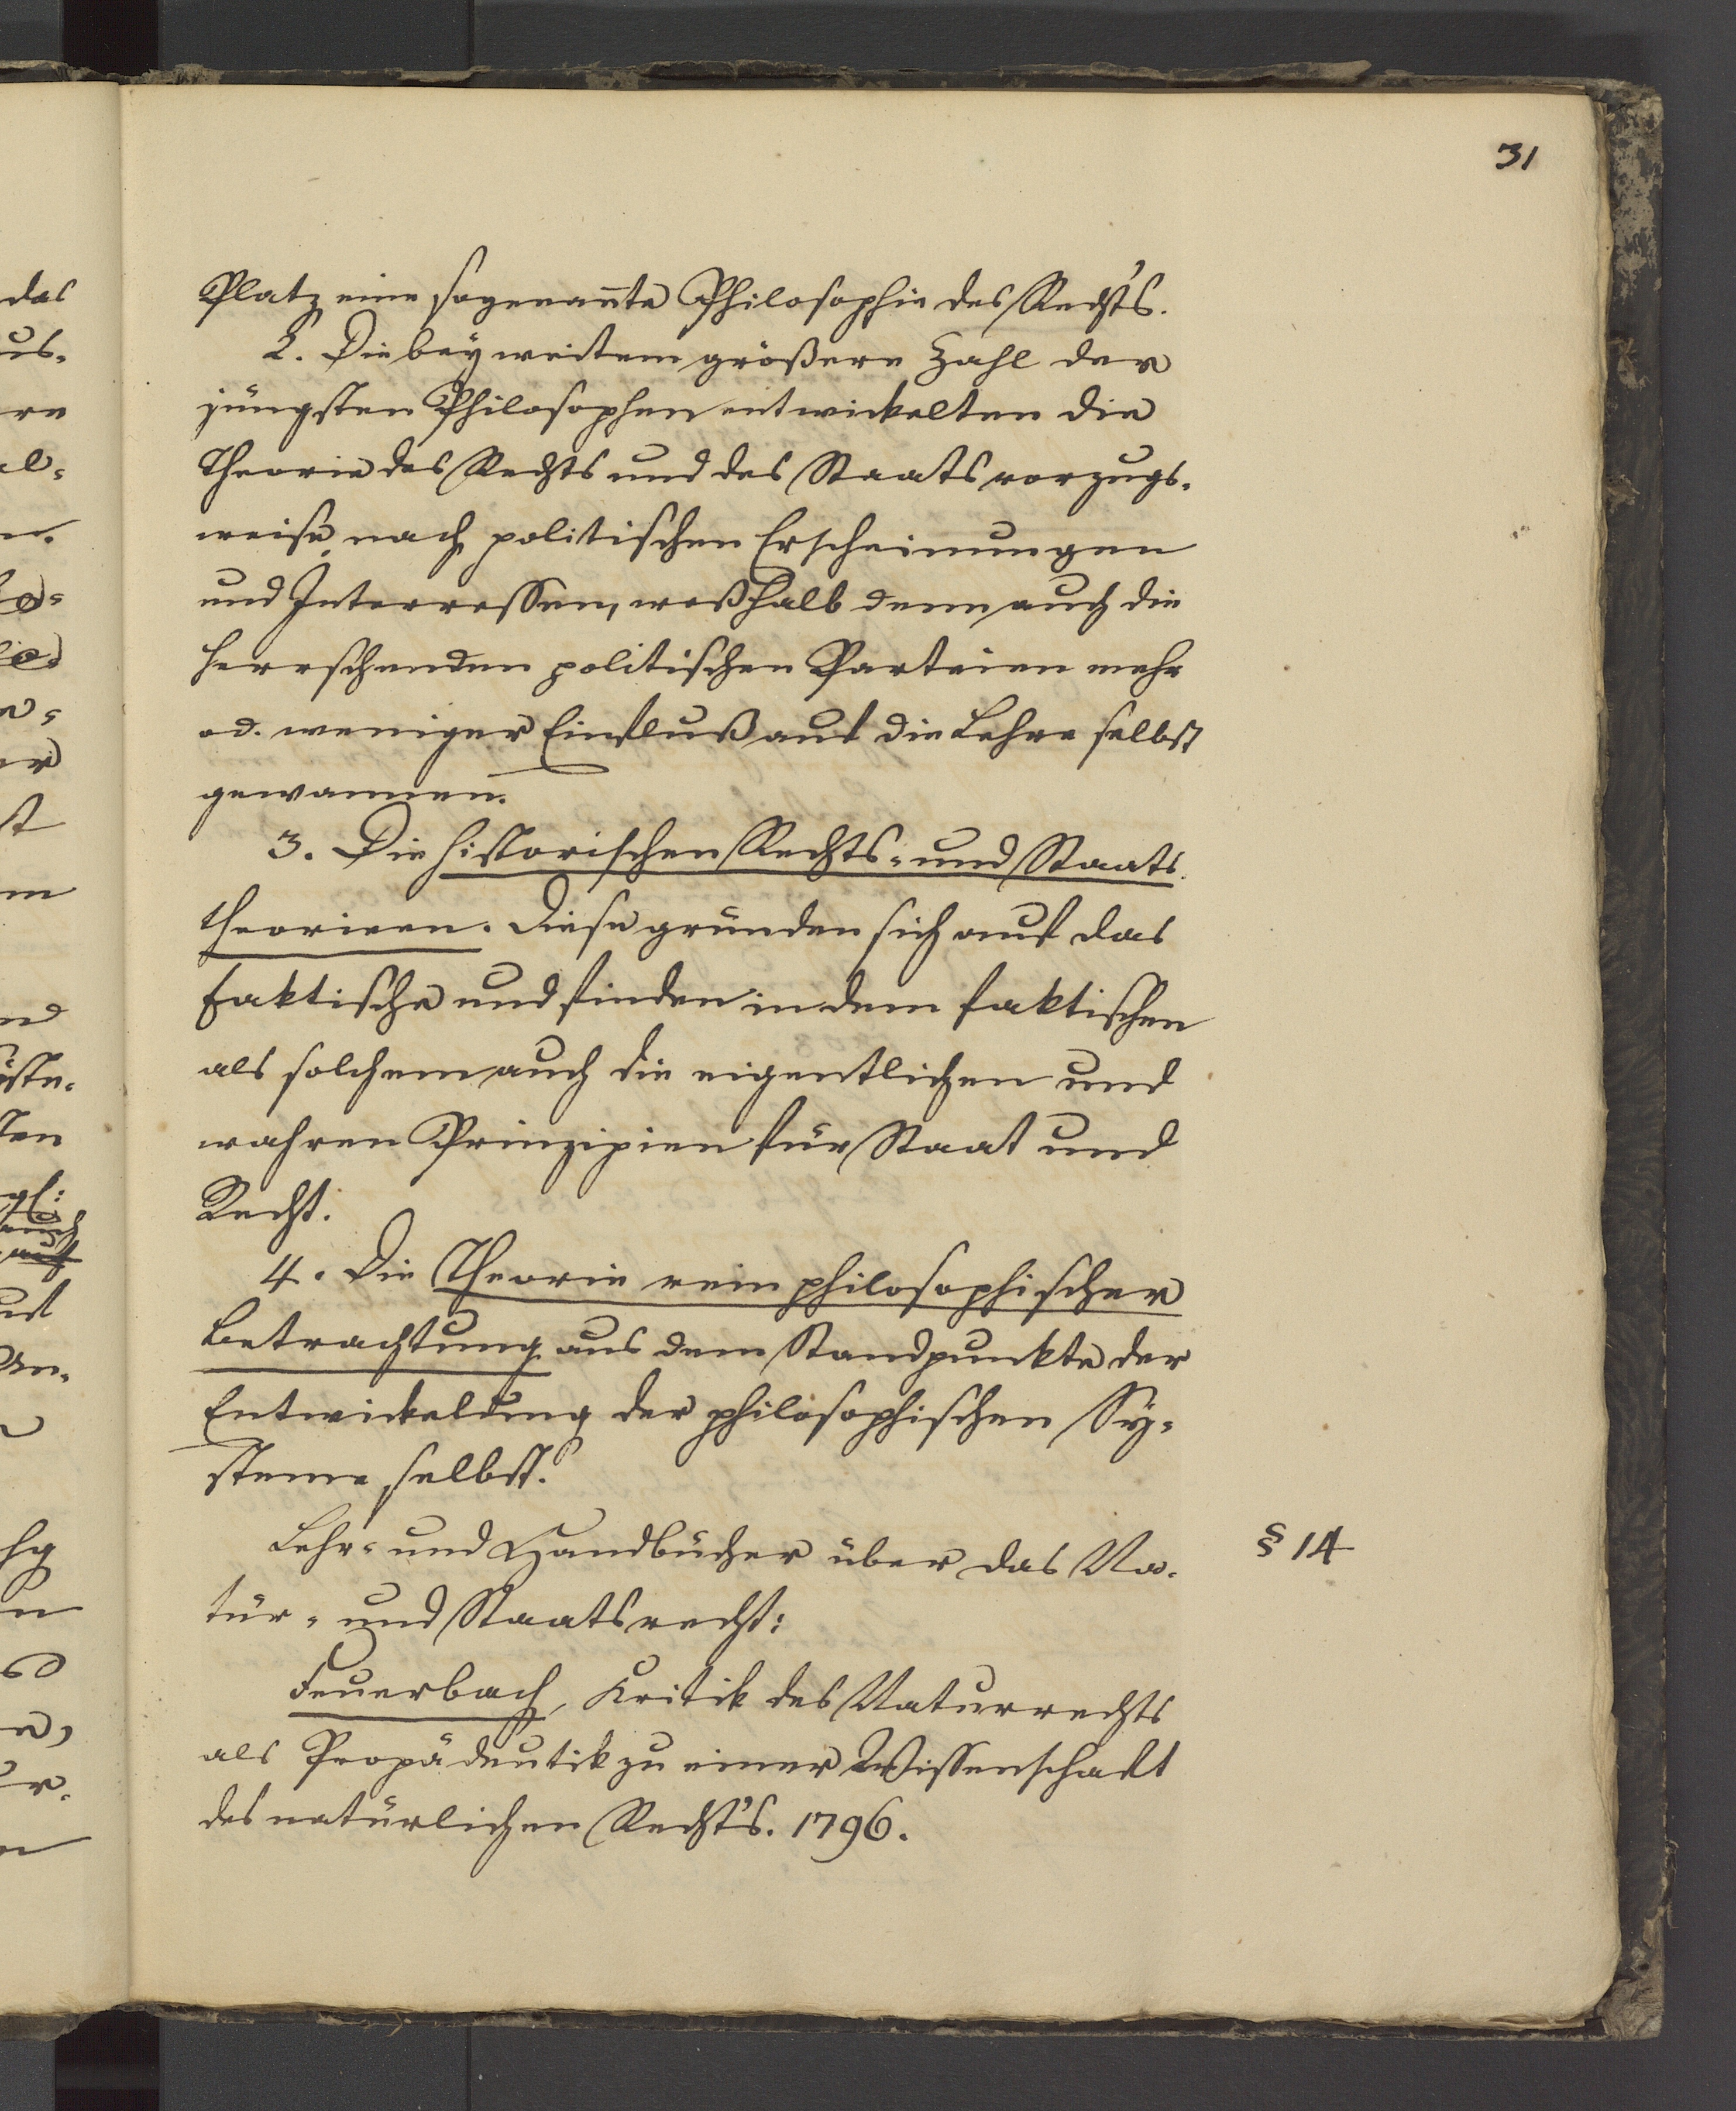 31
Platz eine sogenannte Philosophie des Recht's.
2. Die bey weitem größere Zahl der
jüngsten Philosophen entwickelten die
Theorie des Rechts und des Staats vorzugs-
weise nach politischen Erscheinungen
und Interressen, weßhalb denn auch die
herrschenden politischen Parteien mehr
od. weniger Einfluß auf die Lehre selbst
gewannen.
3. Die historischen Rechts- und Staats-
theorieen. Diese gründen sich auf das
Faktische und finden in dem faktischen
als solchem auch die eigentlichen und
wahren Prinzipien für Staat und
Recht.
4. Die Theorie rein philosophischer
Betrachtung aus dem Standpunkte der
Entwickelung der philosophischen Sy-
steme selbst.
Lehr- und Handbücher über das Na-
tur- und Staatsrecht:
§ 14
Feuerbach, Kritik des Naturrechts
als Propädeutik zu einer Wissenschaft
des natürlichen Recht's. 1796.